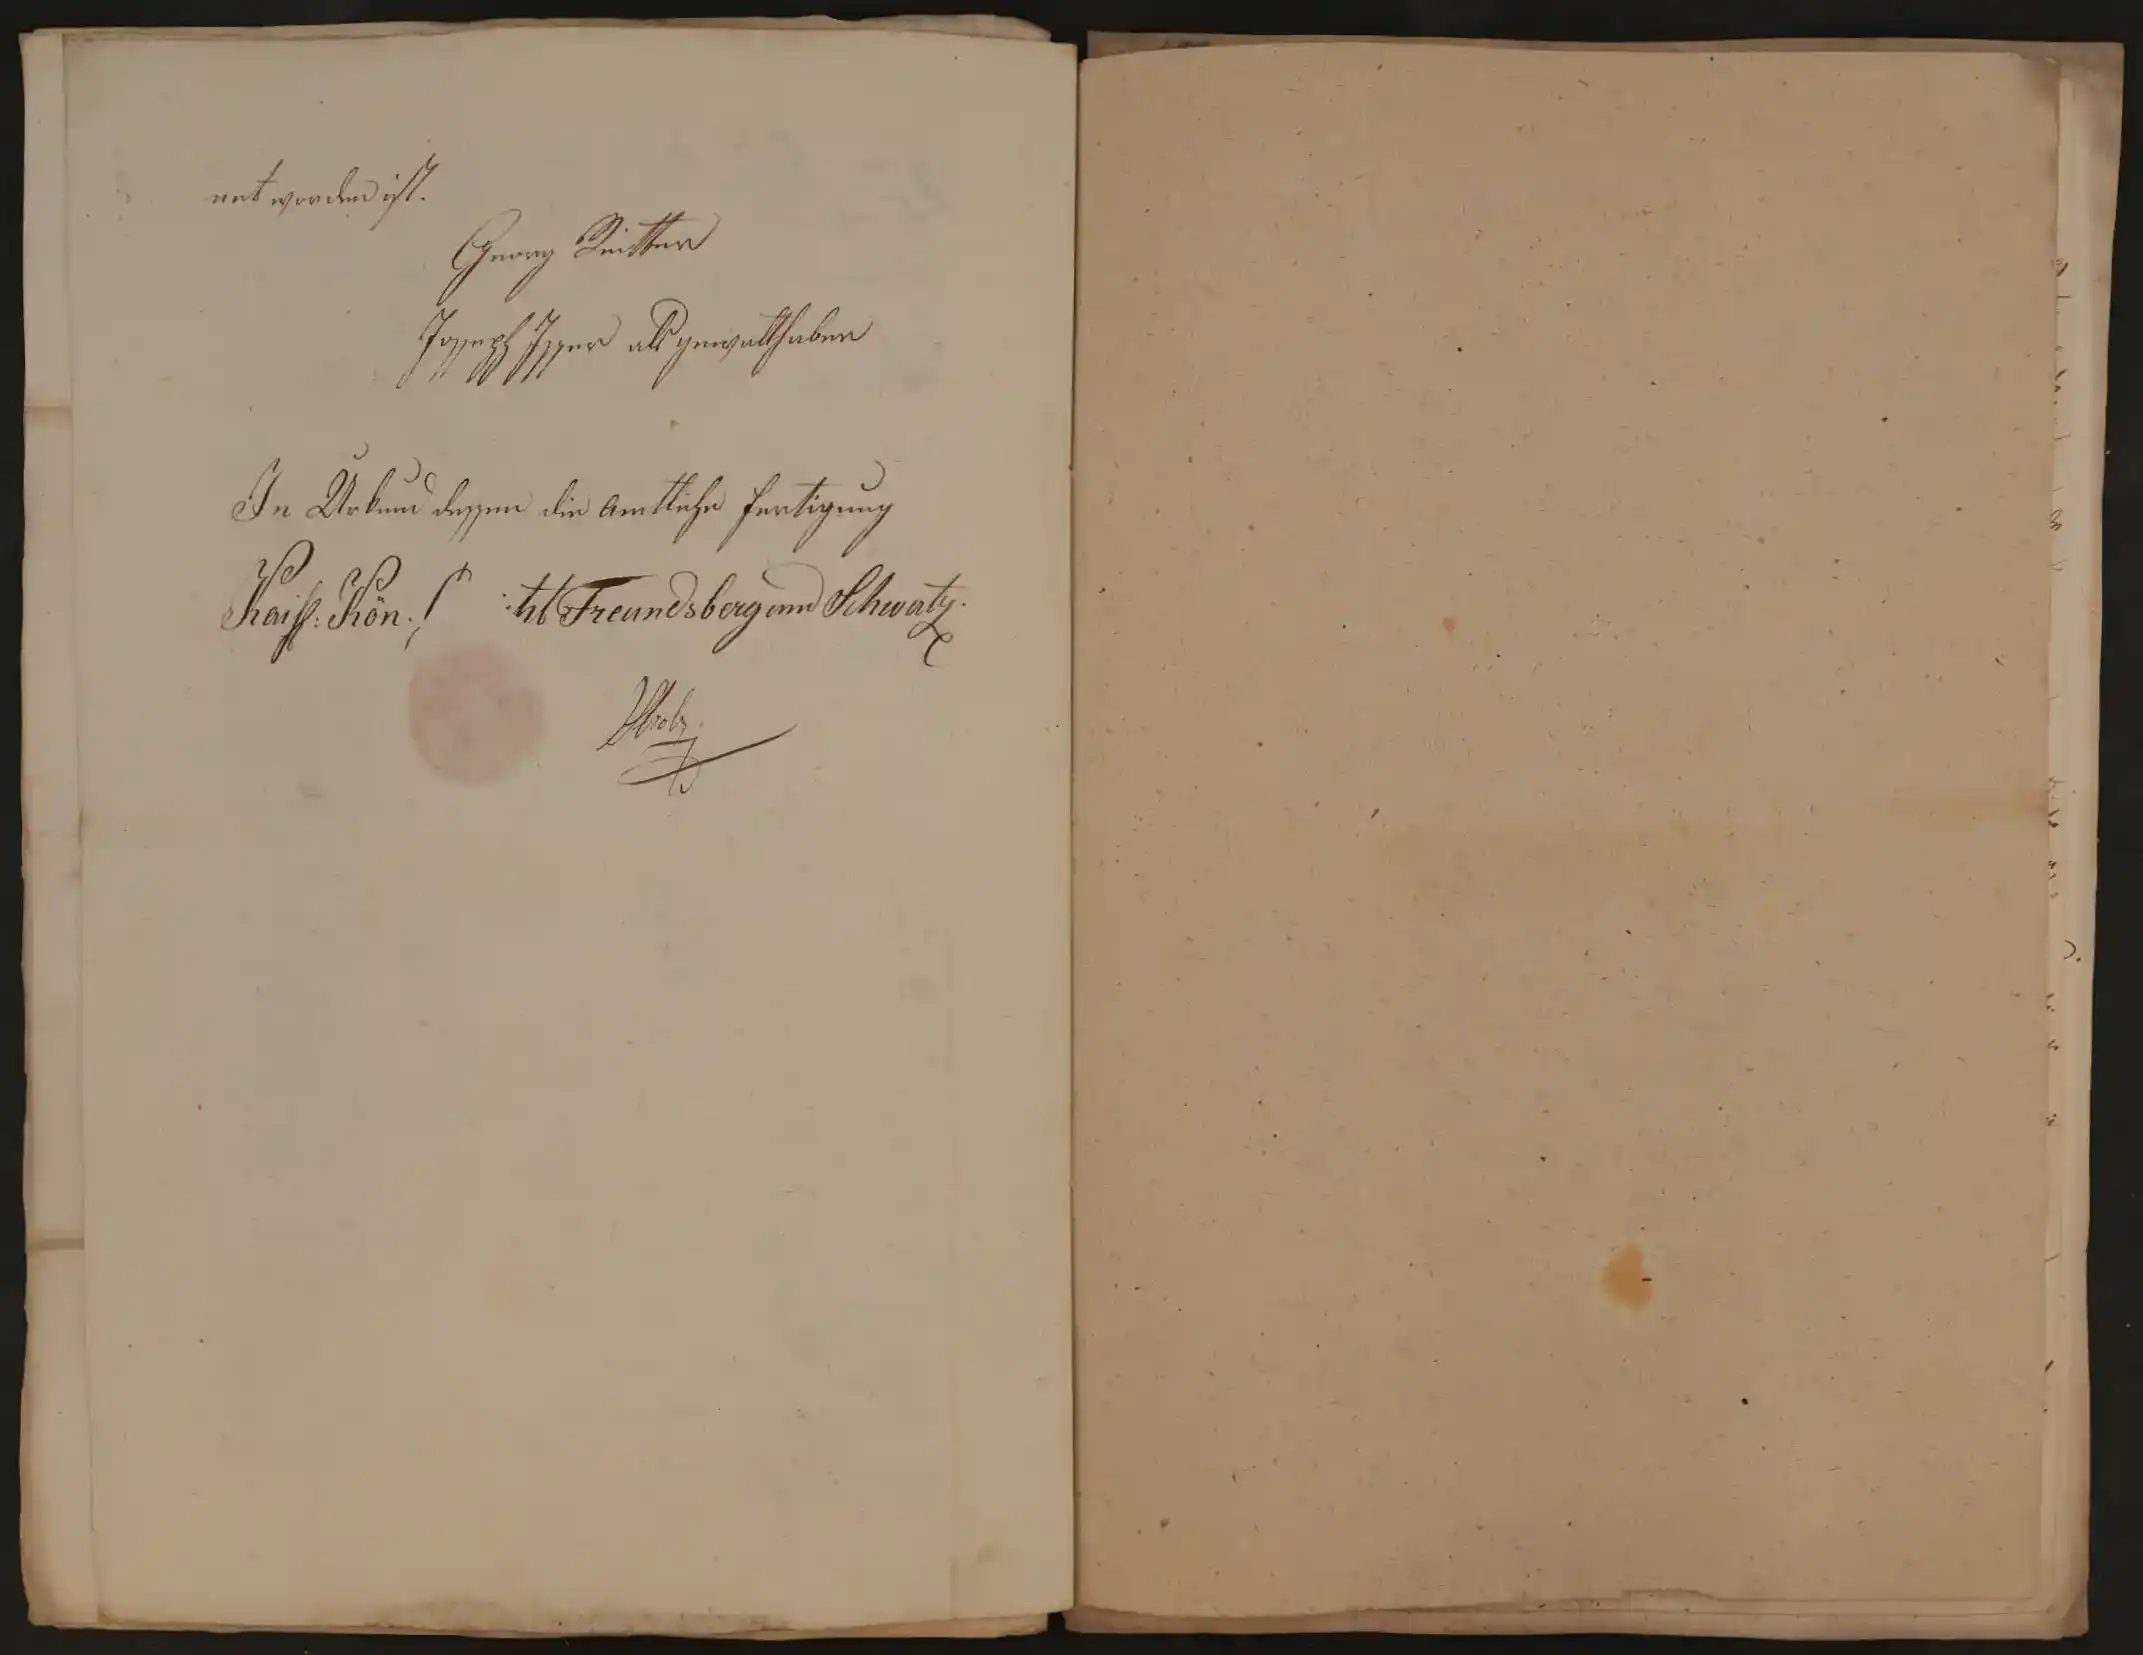 net worden ist.
Georg Reitter
Joseph Isser als gewalthaber
In Urkund dessen die amtliche Fertigung
Kaiß: Kön. Freundsberg und Schwatz.